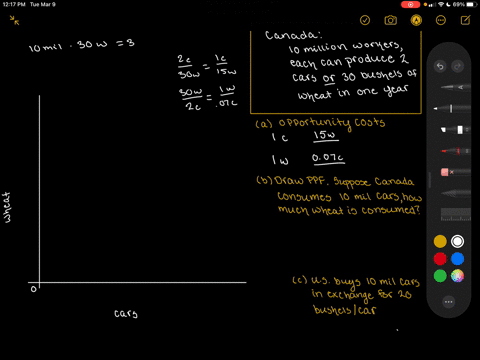 12:17 PM Tue Mar 9
69%
10 mil · 30w = 3
2c/30w = 1c/15w
30w/2c = 1w/.07c
Canada:
10 million workers,
each can produce 2
cars or 30 bushels of
wheat in one year
(a) opportunity costs
1c 15w
1w 0.07c
(b) Draw PPF. Suppose Canada
consumes 10 mil cars, how
much wheat is consumed?
(c) U.S. buys 10 mil cars
in exchange for 20
bushels/car
wheat
0
cars